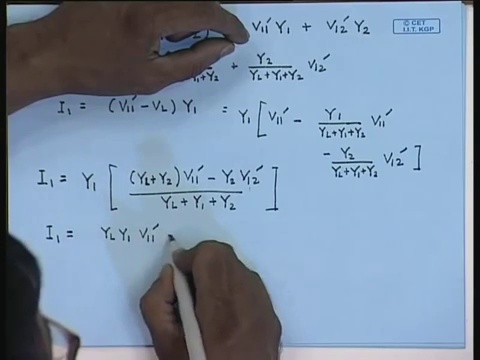 V₁₁′ Y₁ + V₁₂′ Y₂
© CET
I.I.T. KGP
+ Y₂/(Y_L+Y₁+Y₂) V₁₂′
I₁ = (V₁₁′ − V_L) Y₁ = Y₁ [ V₁₁′ − Y₁/(Y_L+Y₁+Y₂) V₁₁′
− Y₂/(Y_L+Y₁+Y₂) V₁₂′ ]
I₁ = Y₁ [ ((Y_L+Y₂) V₁₁′ − Y₂ V₁₂′)/(Y_L + Y₁ + Y₂) ]
I₁ = Y_L Y₁ V₁₁′